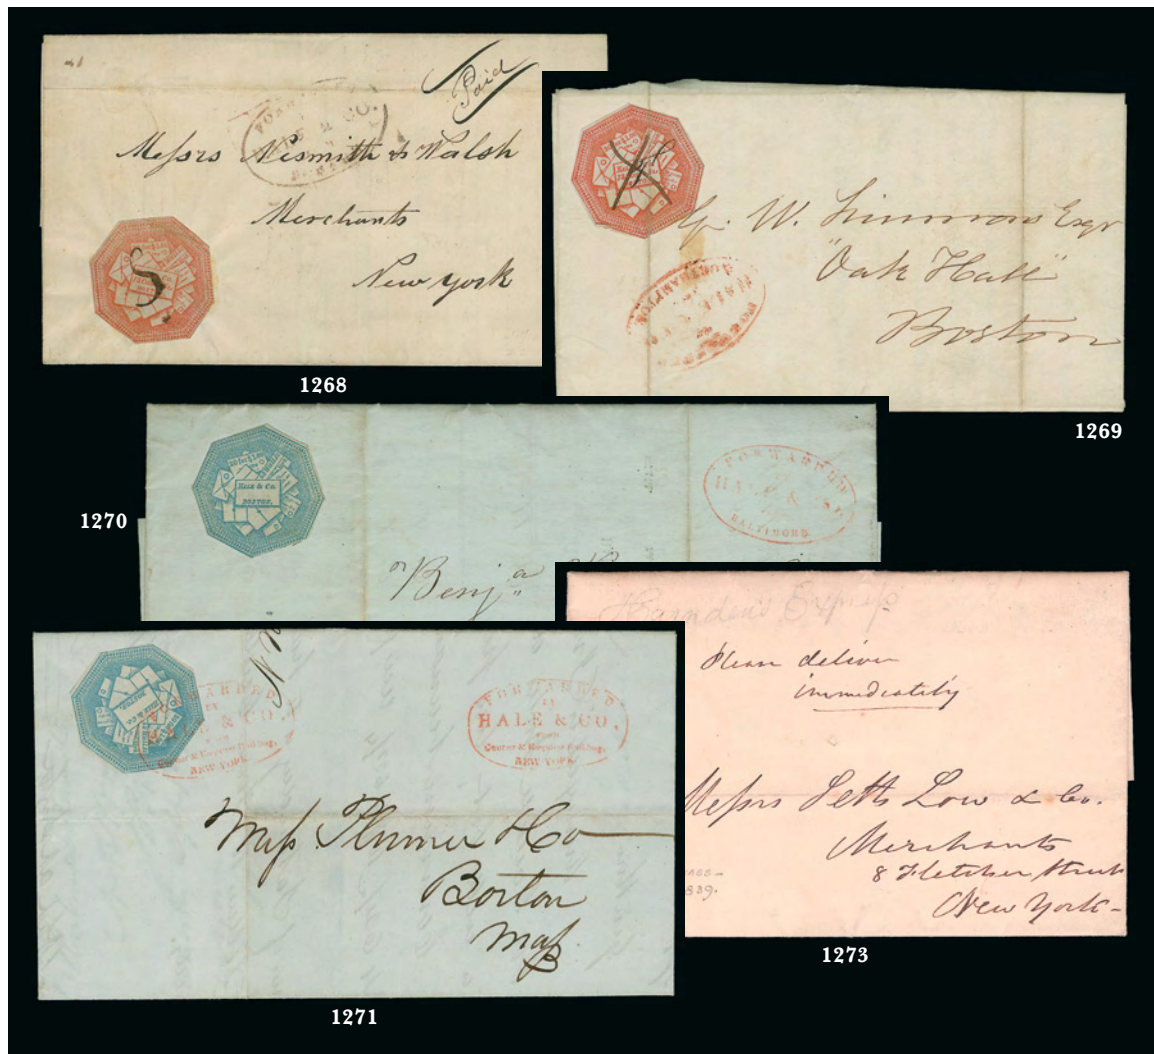 Paid
FORWARDED
HALE & CO.
Messrs Nesmith & Walsh
Merchants
New york
1268
HALE & CO.
BOSTON
G. W. Simmons Esqr
"Oak Hall"
Boston
FORWARDED
HALE & CO.
NORTHAMPTON
1269
HALE & CO.
BOSTON.
FORWARDED
HALE & CO.
BALTIMORE
Benja
1270
HALE & CO.
BOSTON.
FORWARDED
BY
HALE & CO.
FROM
Courier & Enquirer Buildings
NEW YORK
FORWARDED
BY
HALE & CO.
FROM
Courier & Enquirer Buildings
NEW YORK
Mess Plumer & Co
Boston
Mass
1271
Harnden's Express
Please deliver
immediately
Messrs Seth Low & Co.
Merchants
8 Fletcher Street
New York-
839.
1273